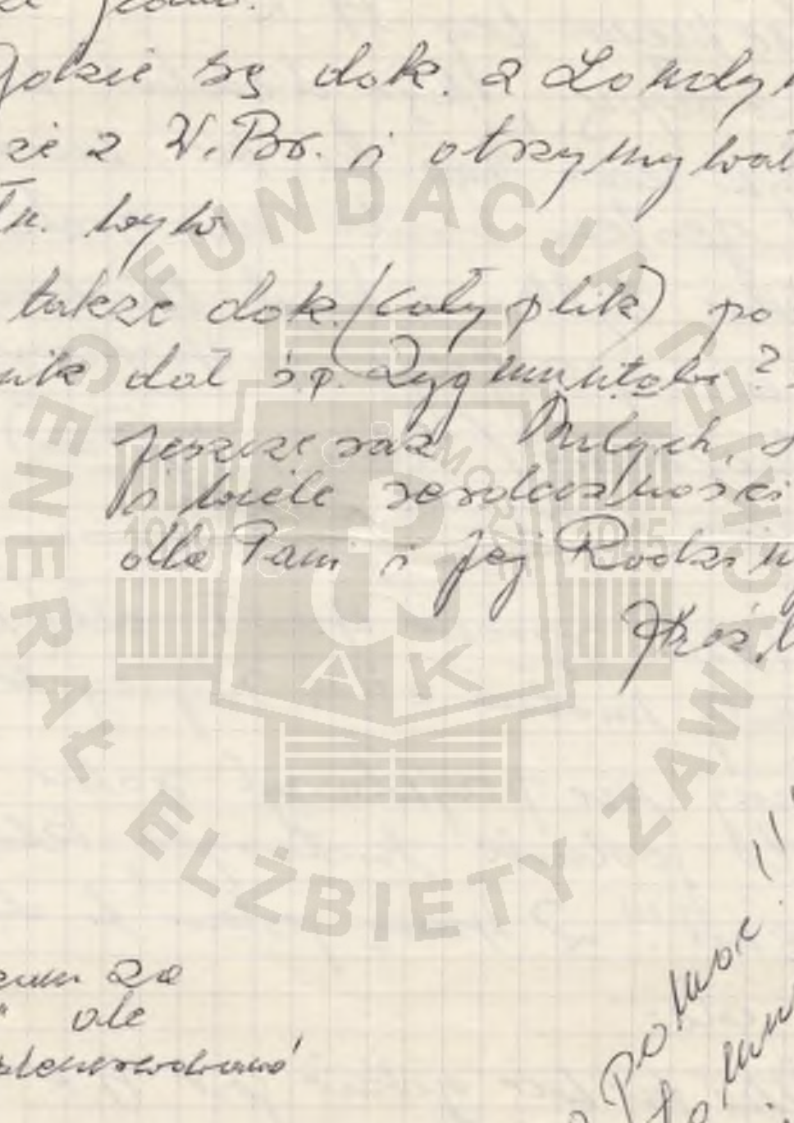 gdzie są dok. z Londy
ze z W. Br. i otrzymywał
łn. było
także dok. (cały plik) po
nik dał ś.p. Zygmuntowi?
jeszcze raz Miłych, s
i wiele serdeczności
dla Pani i Jej Rodziny
za
ale
pomoc!!!
FUNDACJA GENERAŁ ELŻBIETY ZAWACKIEJ
AK